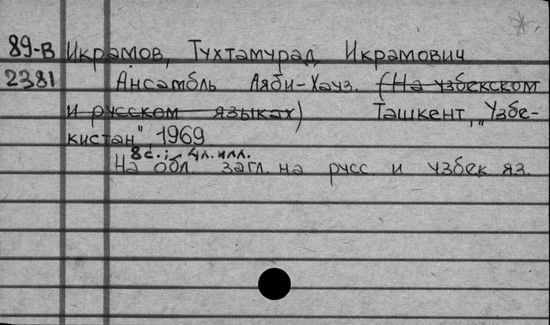 89-В Икрамов, Тухтамурад Икрамович
2381 Ансамбль Ляби-Хауз. (На узбекском
и русском языках) Ташкент, „Узбе-
кистан", 1969
8 с.; 4 л. илл.
На обл загл. на русс и узбек яз.